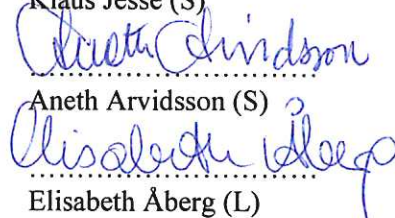 Klaus Jesse (S)
Aneth Arvidsson
Aneth Arvidsson (S)
Elisabeth Åberg
Elisabeth Åberg (L)